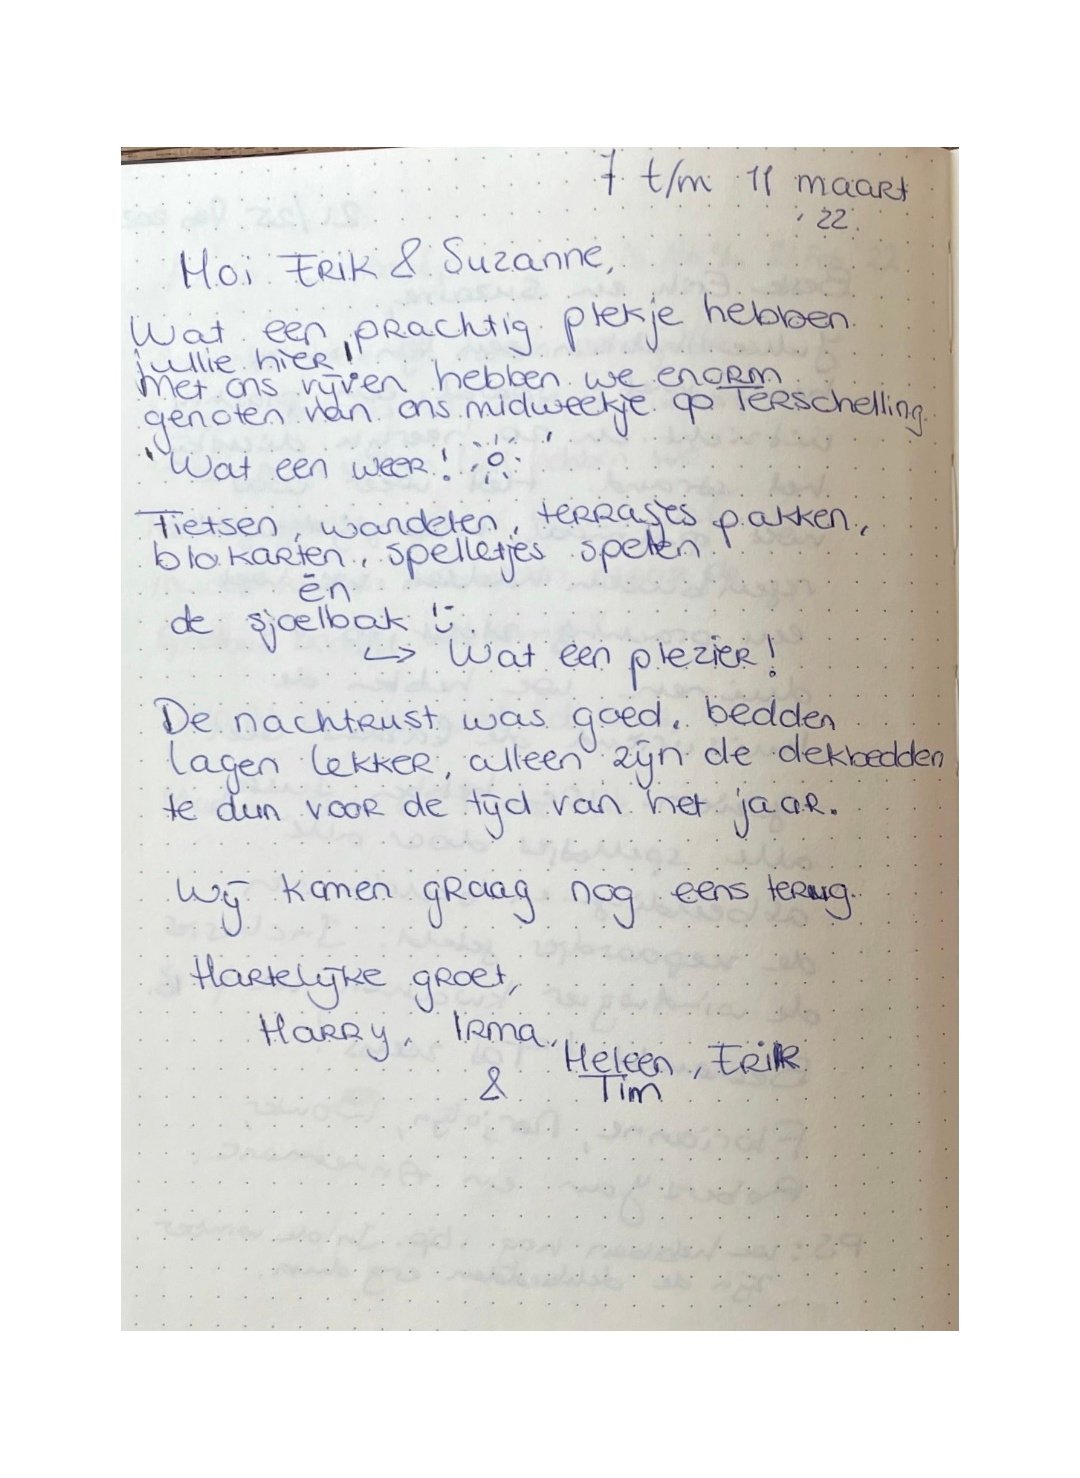 7 t/m 11 maart
'22.
Hoi Erik & Suzanne,
Wat een prachtig plekje hebben
jullie hier!
Met ons vijven hebben we enorm
genoten van ons midweekje op Terschelling.
Wat een weer!
Fietsen, wandelen, terrasjes pakken,
blokarten, spelletjes spelen
én
de sjoelbak
↳ Wat een plezier!
De nachtrust was goed, bedden
lagen lekker, alleen zijn de dekbedden
te dun voor de tijd van het jaar.
Wij komen graag nog eens terug.
Hartelijke groet,
Harry, Irma,
Heleen, Erik
& Tim